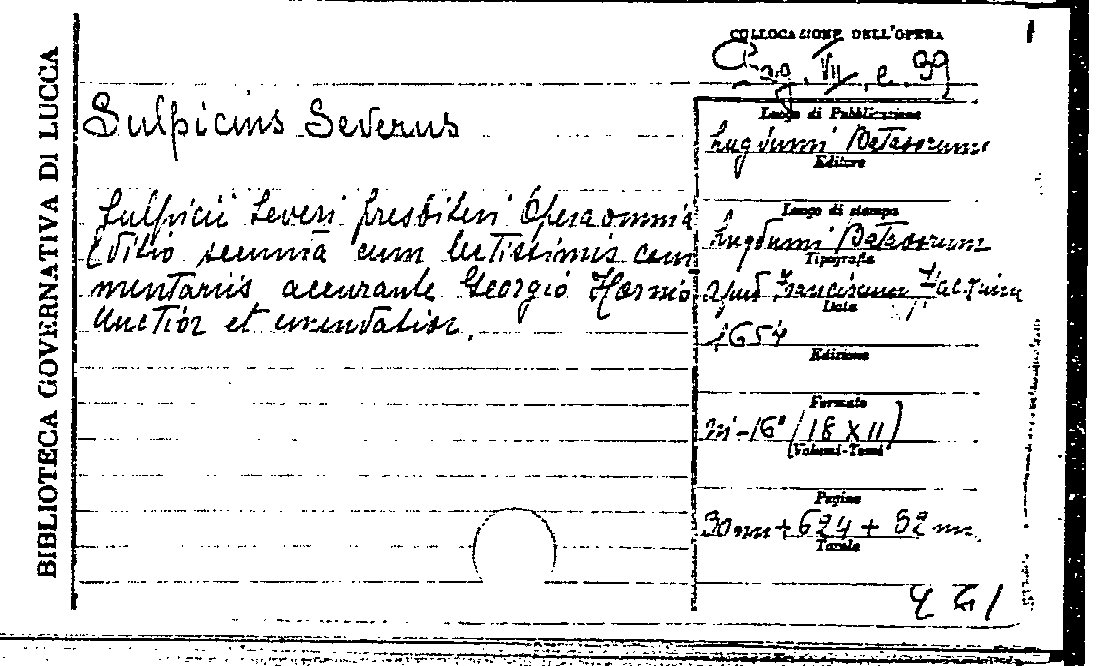 BIBLIOTECA GOVERNATIVA DI LUCCA
COLLOCAZIONE DELL'OPERA
VII. e. 39
Sulpicius Severus
Luogo di Pubblicazione
Lugdumi Batavorum
Editore
Sulpicii Severi presbiteri Opera omnia
Editio secunda cum lectissimis com
mentariis, accurante Georgio Hornio
auctior et emendatior.
Luogo di stampa
Lugdumi Batavorum
Tipografia
apud Franciscum
Data
1654
Edizione
Formato
in-16° (18 X 11)
Volumi-Tomi
Pagine
30 nn + 624 + 32 nn.
Tavole